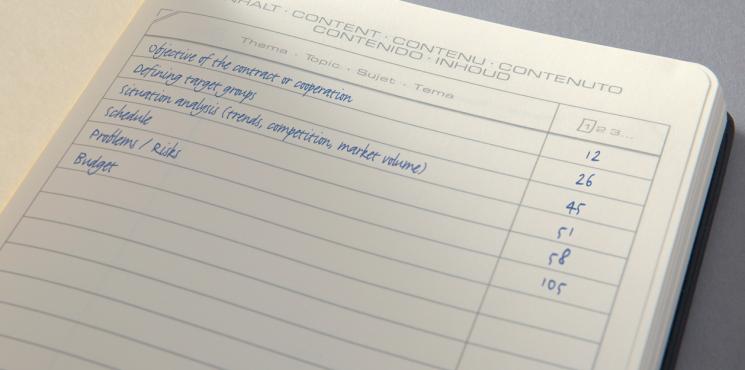 INHALT · CONTENT · CONTENU · CONTENUTO
CONTENIDO · INHOUD
Thema · Topic · Sujet · Tema
1 2 3...
Objective of the contract or cooperation 12
Defining target groups 26
Situation analysis (trends, competition, market volume) 45
Schedule 51
Problems / Risks 58
Budget 105